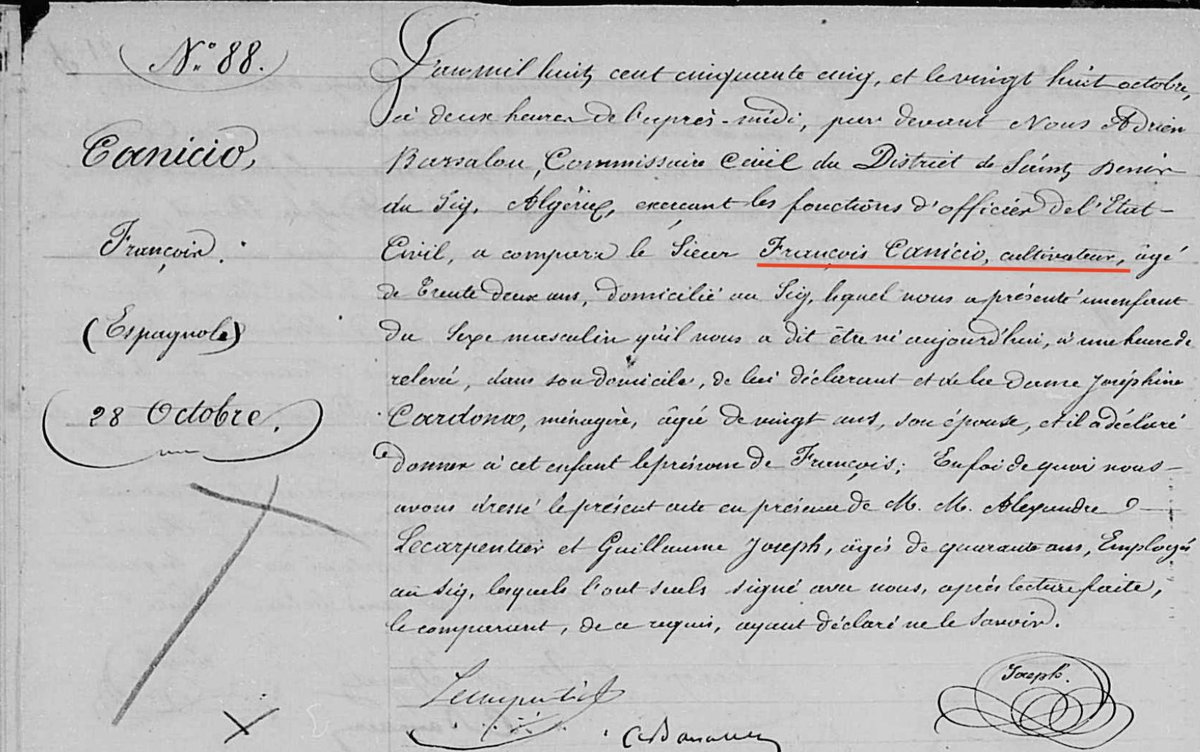 N.o 88.
Canicio,
François.
(Espagnole)
28 Octobre.
L'an mil huit cent cinquante cinq, et le vingt huit octobre,
à deux heures de l'après-midi, par devant Nous Adrien
Barsalou, Commissaire Civil du District de Saint Denis
du Sig, Algérie, exerçant les fonctions d'officier de l'Etat-
Civil, a comparu le Sieur François Canicio, cultivateur, âgé
de Trente deux ans, domicilié au Sig, lequel nous a présenté un enfant
du Sexe masculin qu'il nous a dit être né aujourd'hui, à une heure de
relevée, dans son domicile, de lui déclarant et de la dame Joséphine
Cardona, ménagère, âgée de vingt ans, son épouse, et il a déclaré
donner à cet enfant le prénom de François; En foi de quoi nous
avons dressé le présent acte en présence de M. M. Alexandre
Lecarpentier et Guillaume Joseph, âgés de quarante ans, Employés
au Sig, lesquels l'ont seuls signé avec nous, après lecture faite,
le comparant, de ce requis, ayant déclaré ne le savoir.
Joseph.